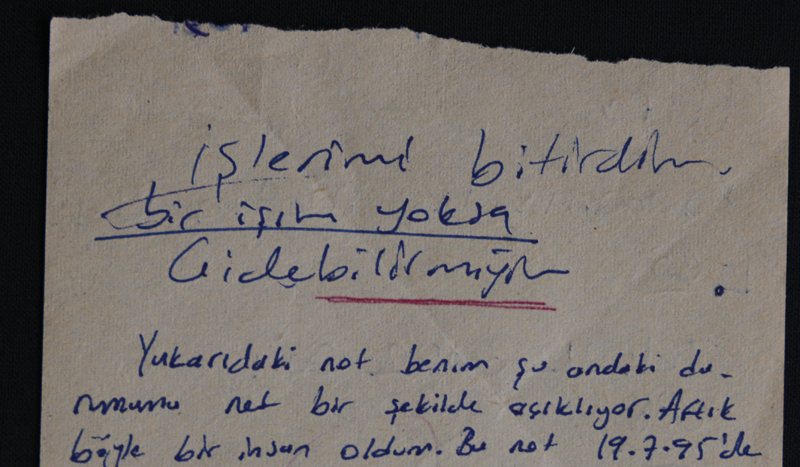 işlerimi bitirdim.
bir işim yoksa
Gidebilirmiyim
Yukarıdaki not benim şu andaki du-
rumumu net bir şekilde açıklıyor. Artık
böyle bir insan oldum. Bu not 19.7.95'de